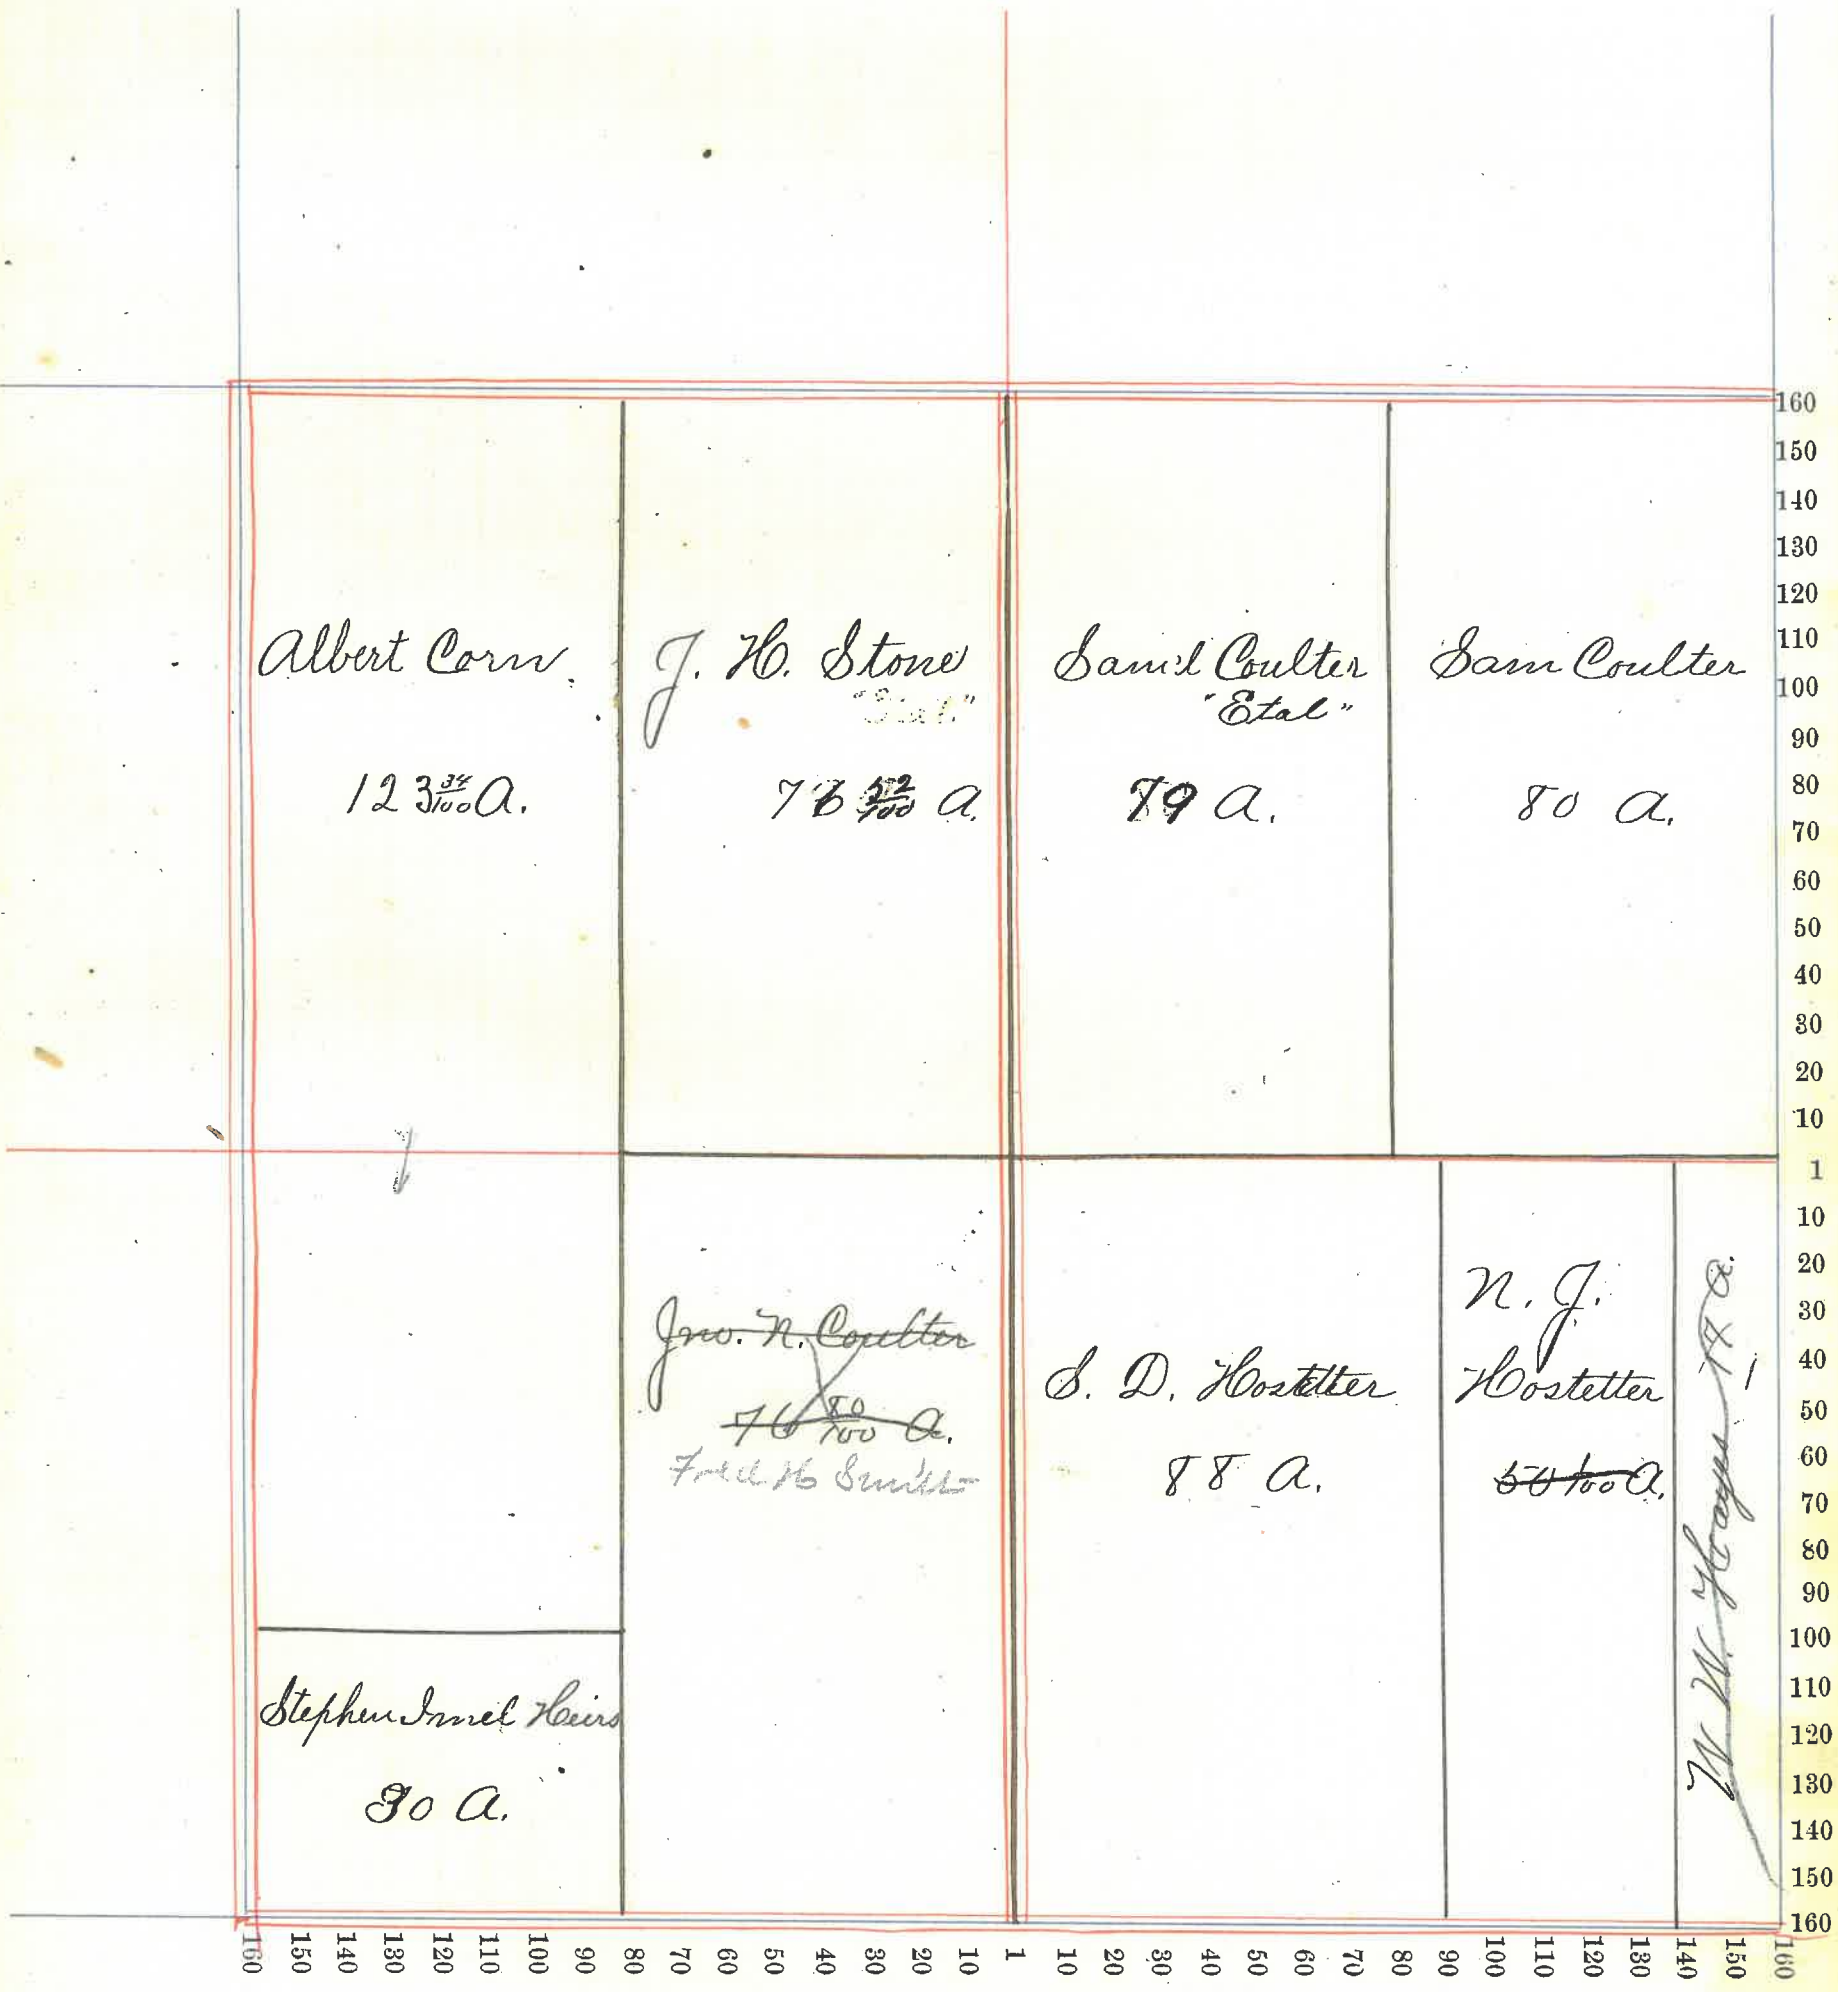 Albert Corn.
123 34/100 A.
J. H. Stone
A.
Sam'l Coulter
"Etal"
79 A.
Sam Coulter
80 A.
Jno. N. Coulter
76 80/100 A.
Fred H
S. D. Hostetter
88 A.
N. J.
Hostetter
A.
W. W. Hayes A.
Stephen Imel Heirs
30 A.
160
150
140
130
120
110
100
90
80
70
60
50
40
30
20
10
1
10
20
30
40
50
60
70
80
90
100
110
120
130
140
150
160
160 150 140 130 120 110 100 90 80 70 60 50 40 30 20 10 1 10 20 30 40 50 60 70 80 90 100 110 120 130 140 150 160